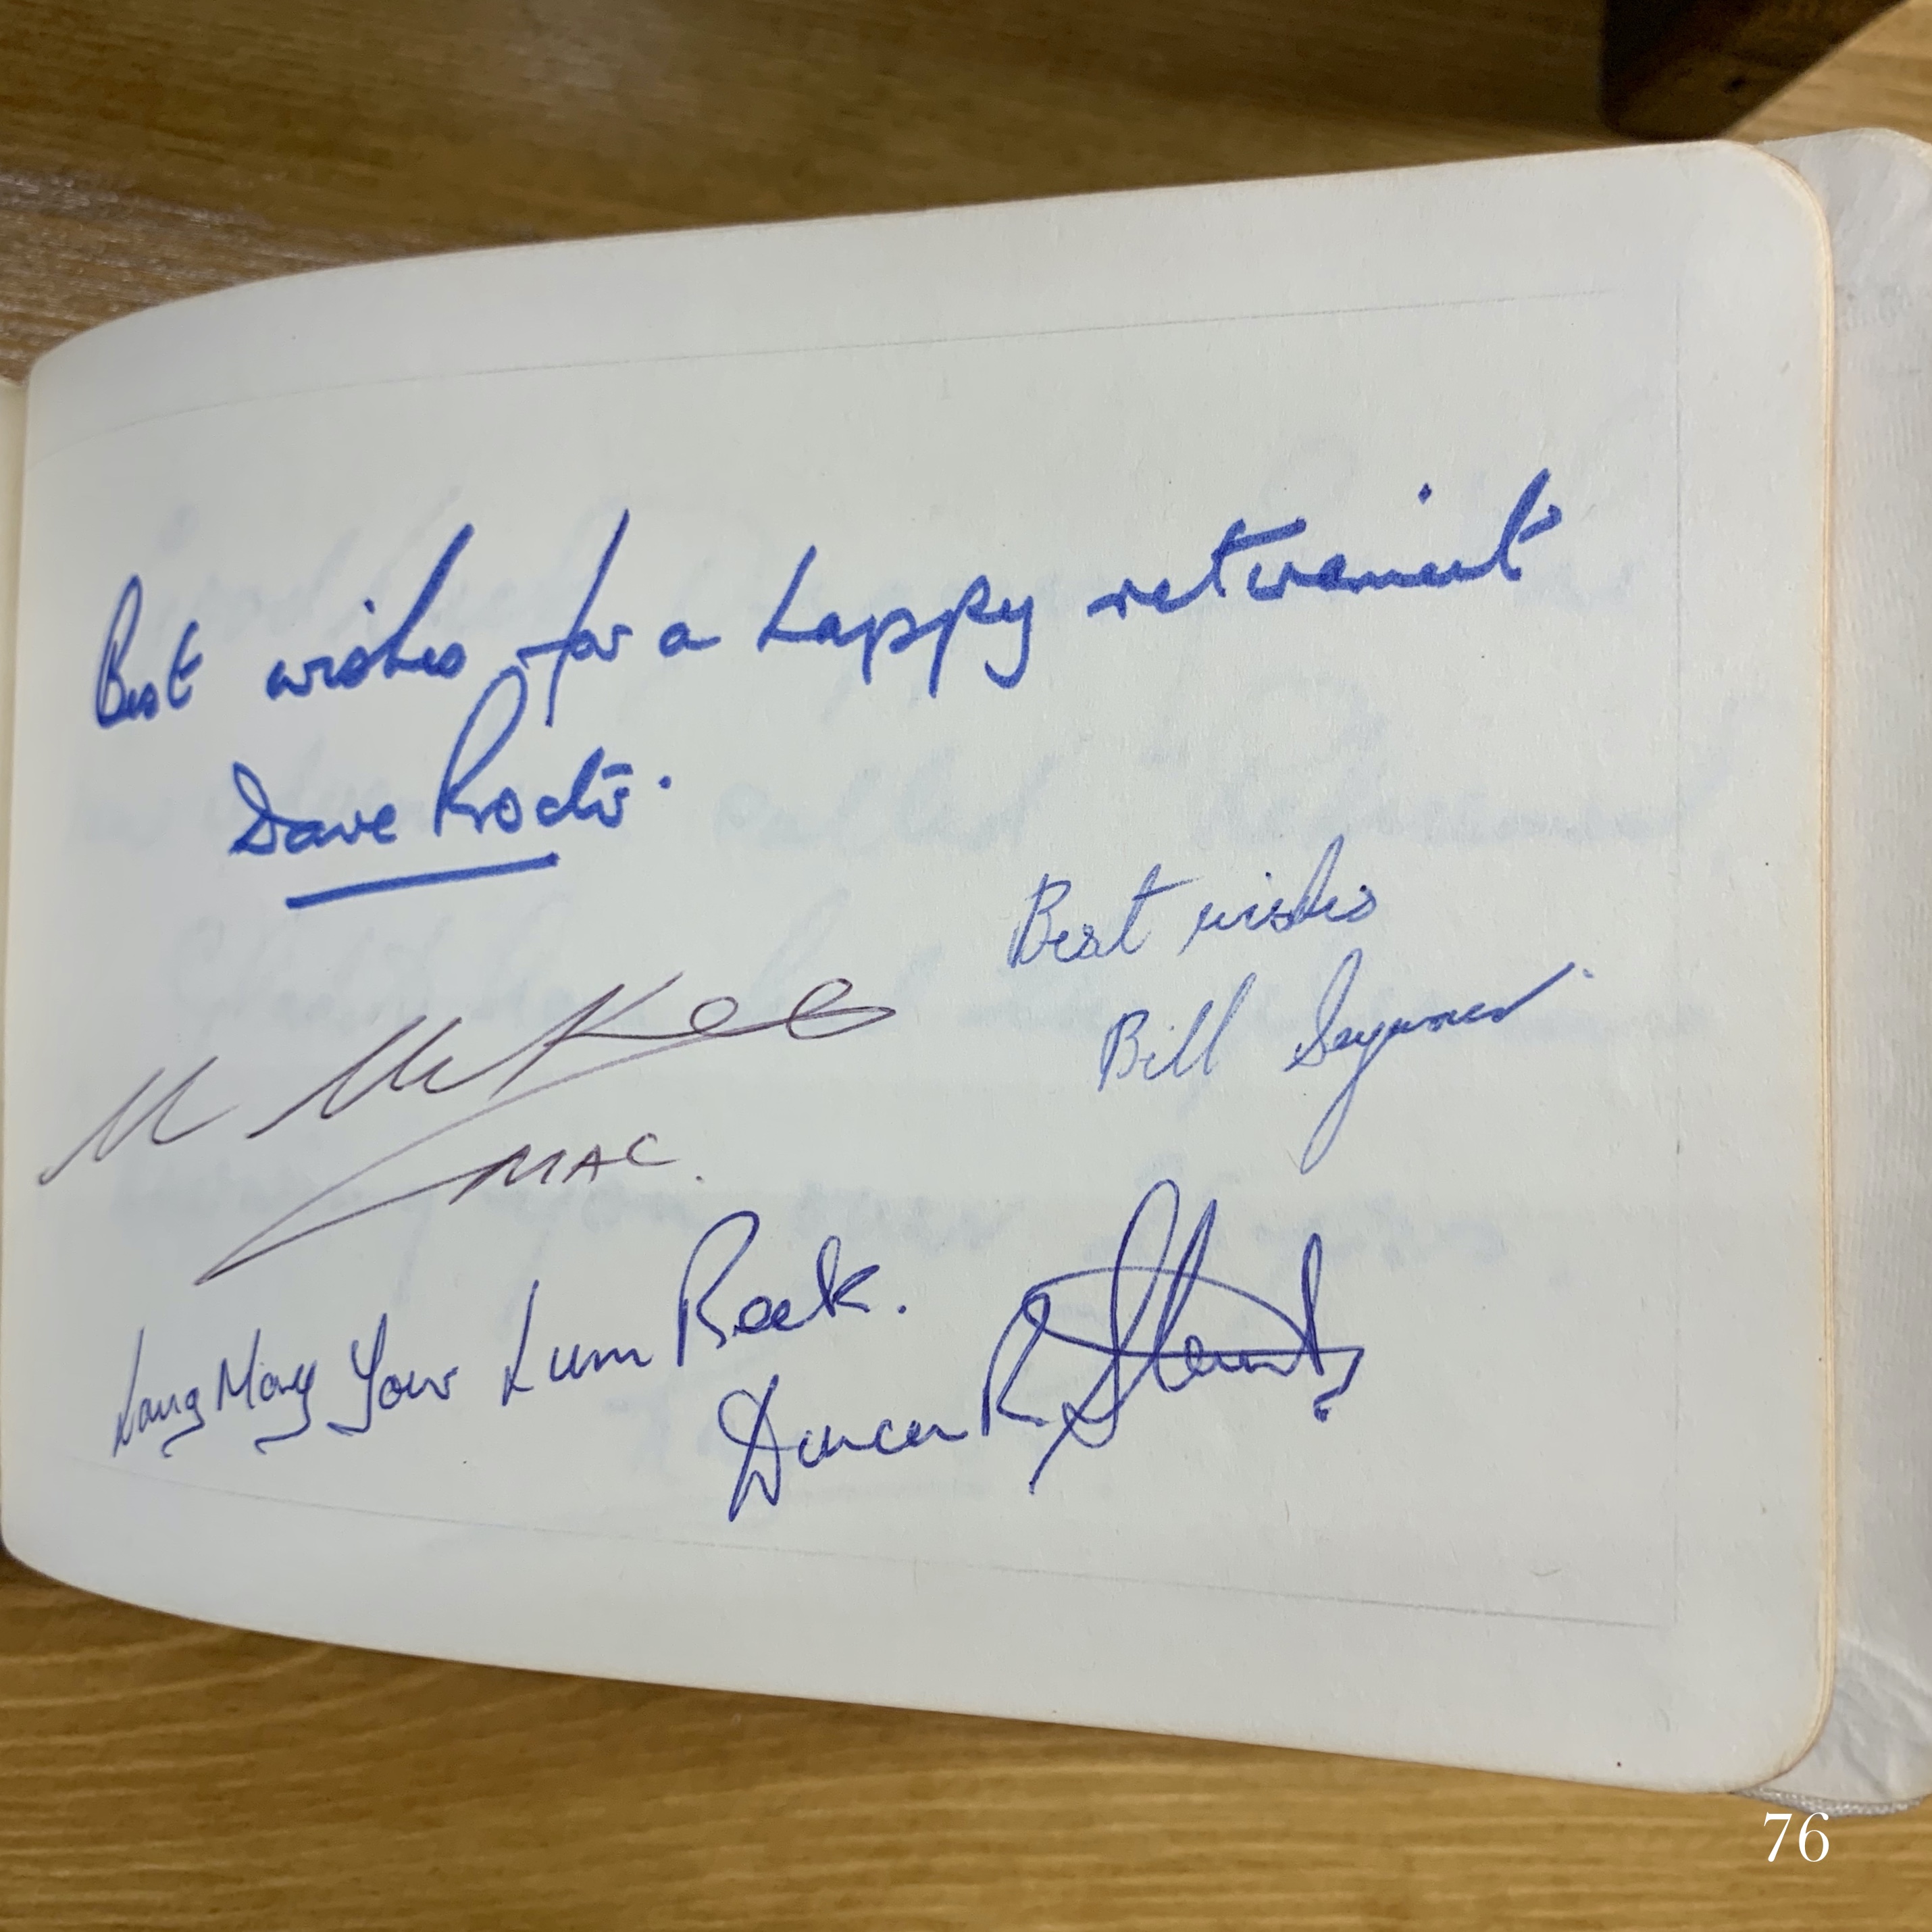 Best wishes for a happy retirement
Dave Proctor.
Best wishes
Bill Seymour
M McKee
MAC.
Lang May Your Lum Reek.
Duncan R.
76